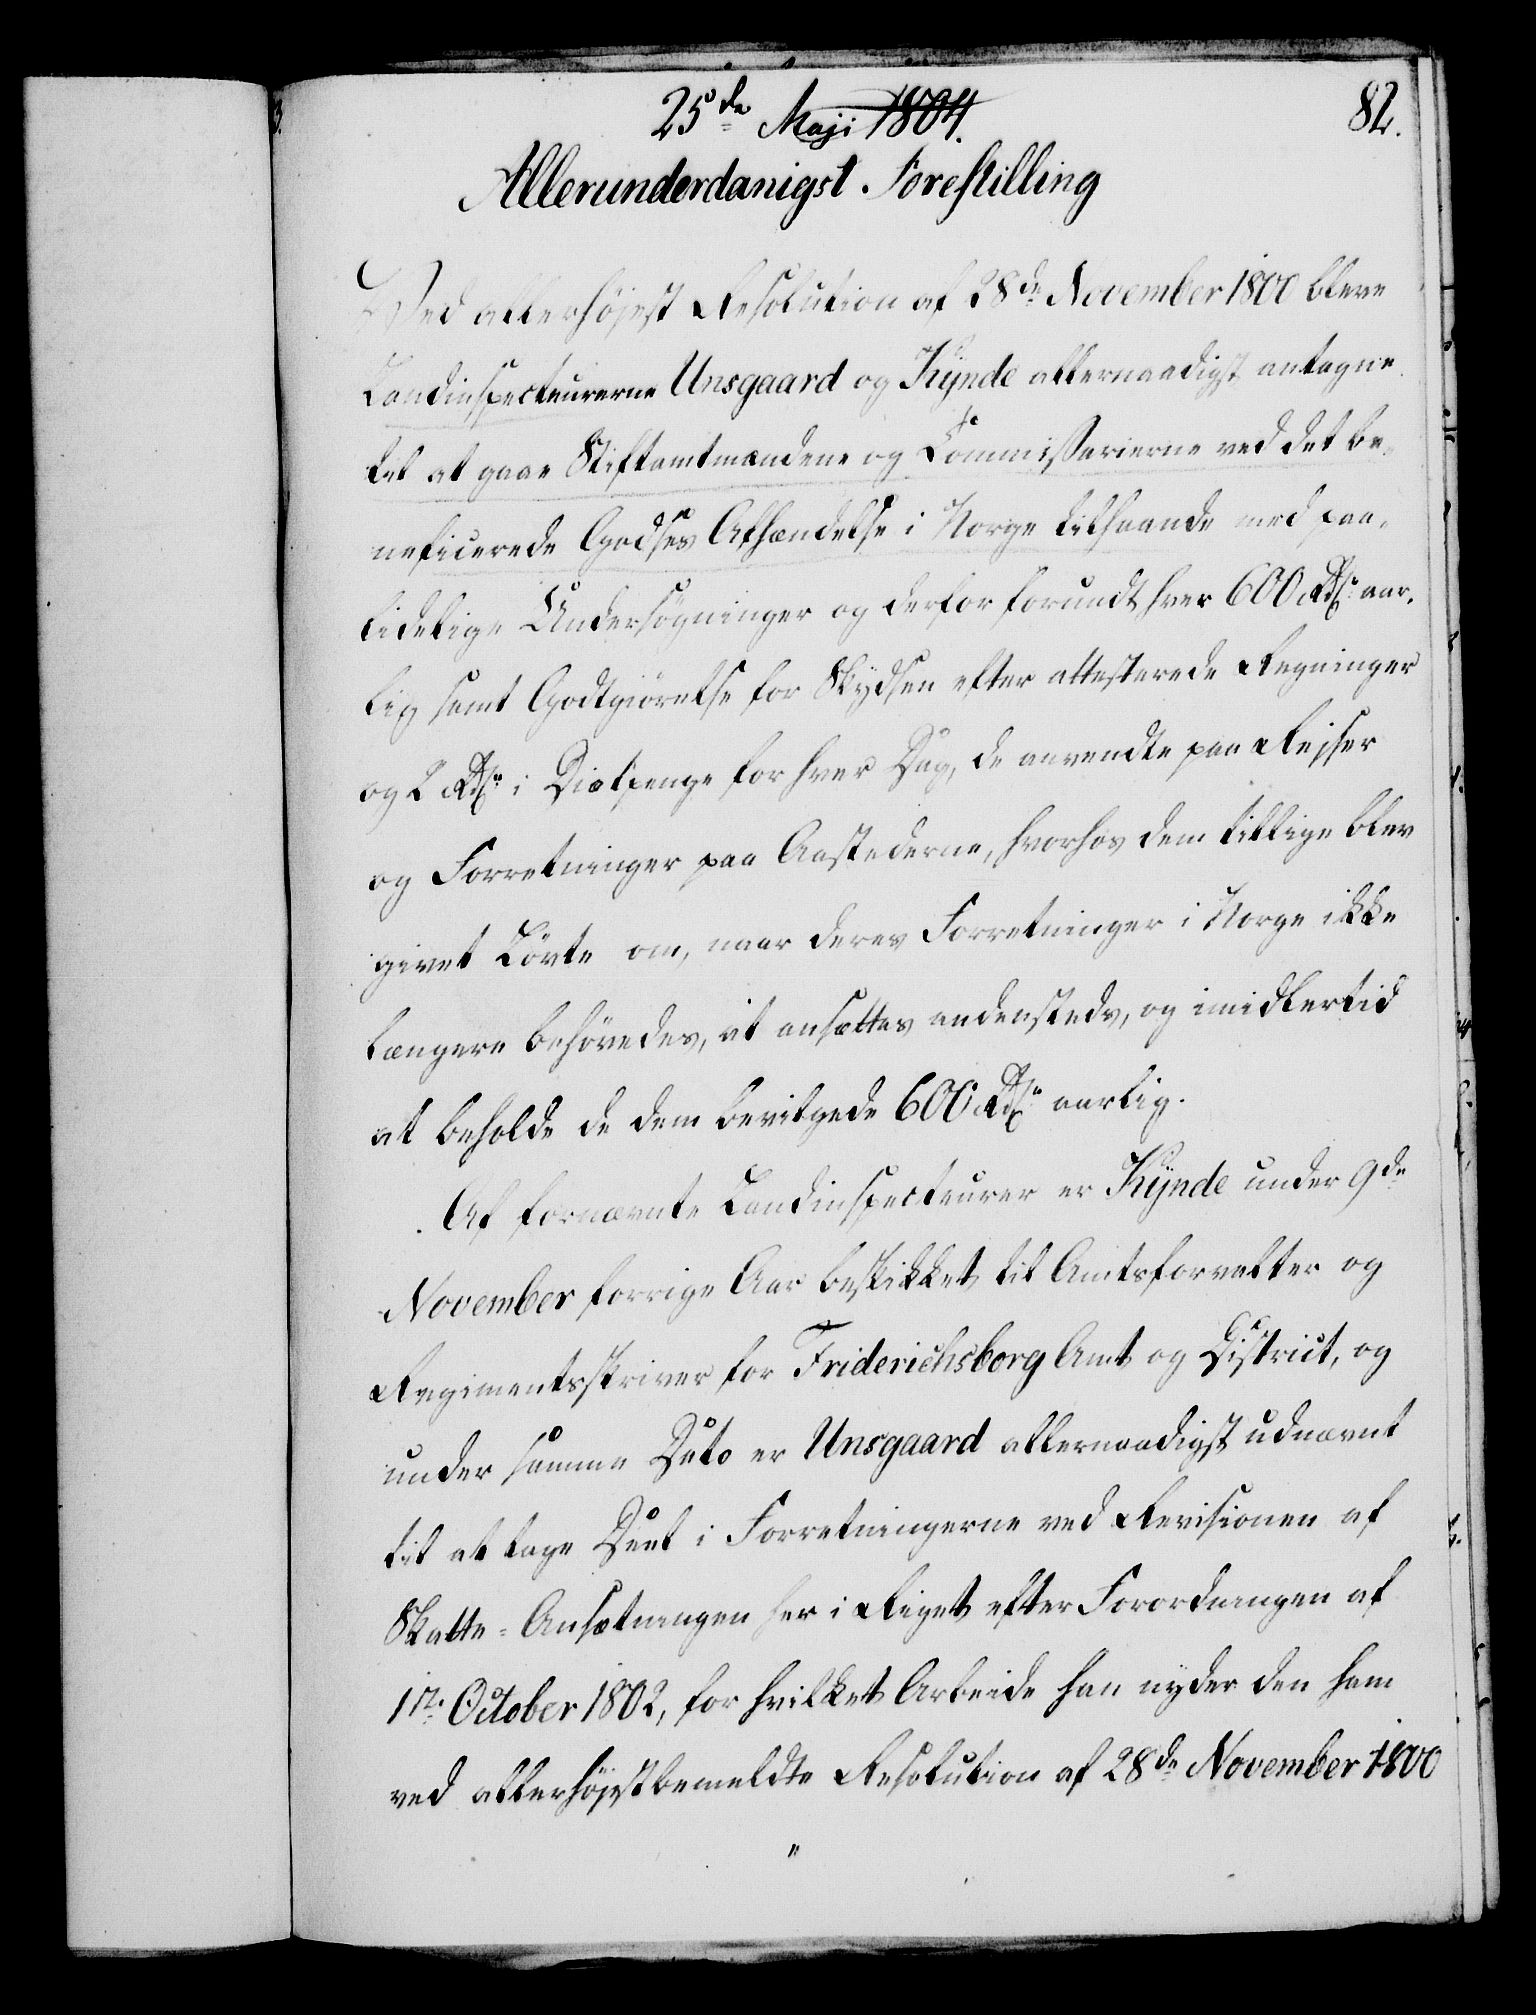 25de Maji 1804.
82.
Allerunderdanigst Forestilling
Ved allerhøjest Resolution af 28de November 1800 bleve
Landinspecteurerne Unsgaard og Kÿnde allernaadigst antagne
til at gaae Stiftamtmændene og Commissarierne ved det be-
neficerede Godses Afhændelse i Norge tilhaande med paa-
lidelige Undersøgninger og derfor forundt hver 600 Rdlr aar-
lig samt Godtgiørelse for Skydsen efter attesterede Regninger
og 2 Rdlr i Diætpenge for hver Dag, de anvendte paa Rejser
og Forretninger paa Aastederne, hvorhos dem tillige blev
givet Løvte om, naar deres Forretninger i Norge ikke
længere behøvedes, at ansættes andensteds, og imidlertid
at beholde de dem bevilgede 600 Rdlr aarlig.
Af fornævnte Landinspecteurer er Kÿnde under 9de
November forrige Aar beskikket til Amtsforvalter og
Regimentsskriver for Friderichsborg Amt og District, og
under samme Dato er Unsgaard allernaadigst udnævnt
til at tage Deel i Forretningerne ved Revisionen af
Skatte-Ansætningen her i Riget efter Forordningen af
1ste October 1802, for hvilket Arbeide han nyder den ham
ved allerhøjstbemeldte Resolution af 28de November 1800
"